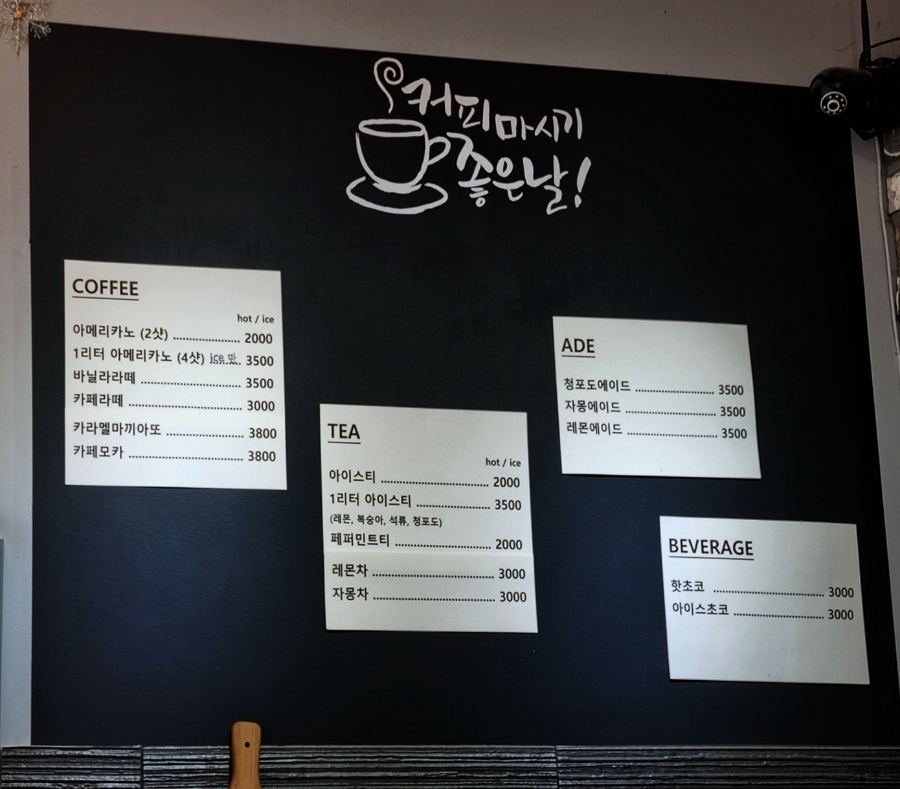 커피 마시기
좋은날!
COFFEE
hot / ice
아메리카노 (2샷) 2000
1리터 아메리카노 (4샷) ice 만 3500
바닐라라떼 3500
카페라떼 3000
카라멜마끼아또 3800
카페모카 3800
TEA
hot / ice
아이스티 2000
1리터 아이스티 3500
(레몬, 복숭아, 석류, 청포도)
페퍼민트티 2000
레몬차 3000
자몽차 3000
ADE
청포도에이드 3500
자몽에이드 3500
레몬에이드 3500
BEVERAGE
핫초코 3000
아이스초코 3000